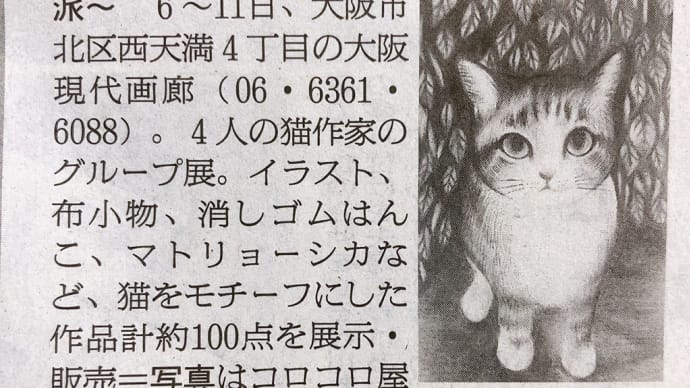 派～ 6～11日、大阪市
北区西天満4丁目の大阪
現代画廊（06・6361・
6088）。4人の猫作家の
グループ展。イラスト、
布小物、消しゴムはん
こ、マトリョーシカな
ど、猫をモチーフにした
作品計約100点を展示・
販売＝写真はコロコロ屋